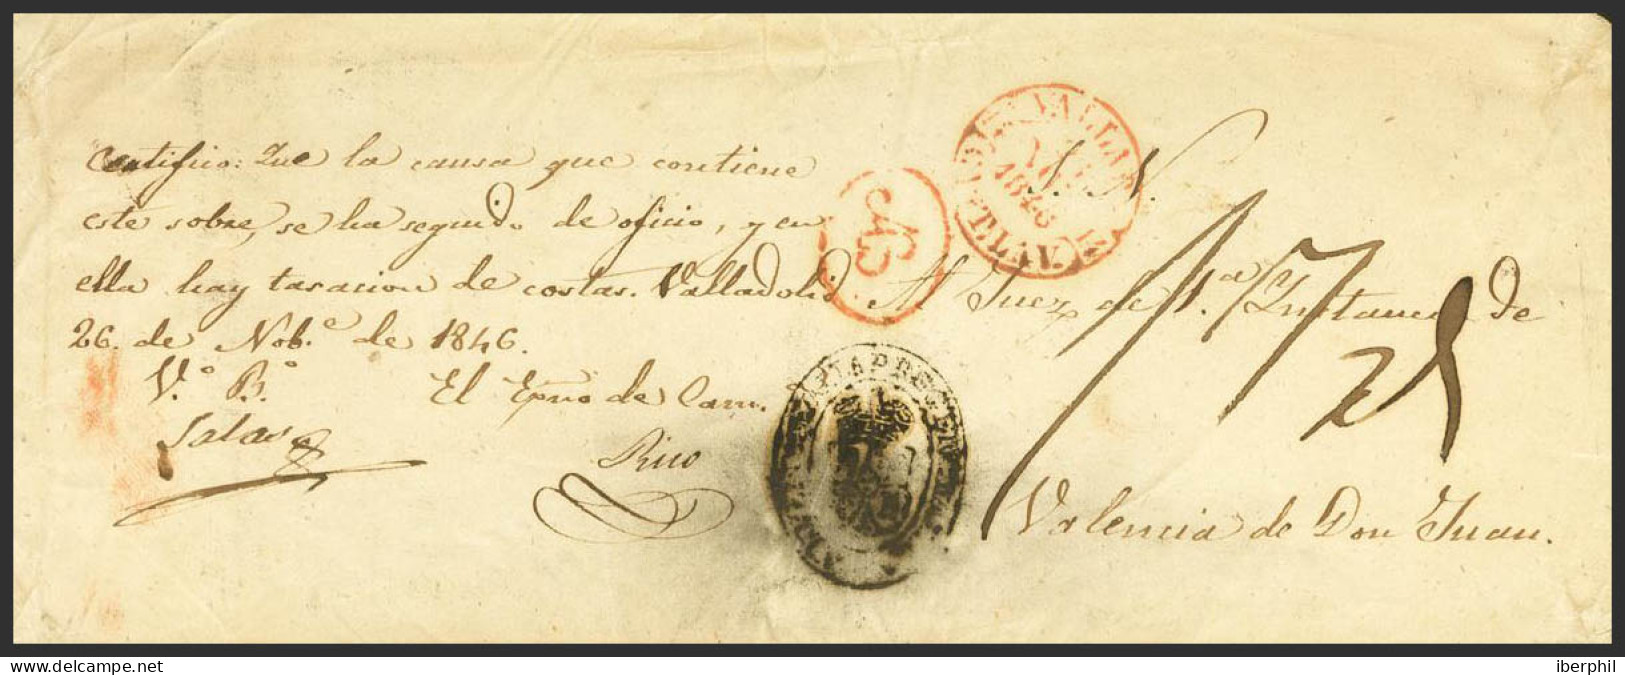 Certifico: Que la causa que contiene
este sobre, se ha seguido de oficio, y en
ella hay tasacion de costas. Valladolid
26. de Nob.e de 1846.
V.o B.o
Salas
El Esno de Cam.
Rico
S. N.
Al Juez de 1.a Instancia de
Valencia de Don Juan.
VALLADOLID
1846
CAST. LA V.
iberphil